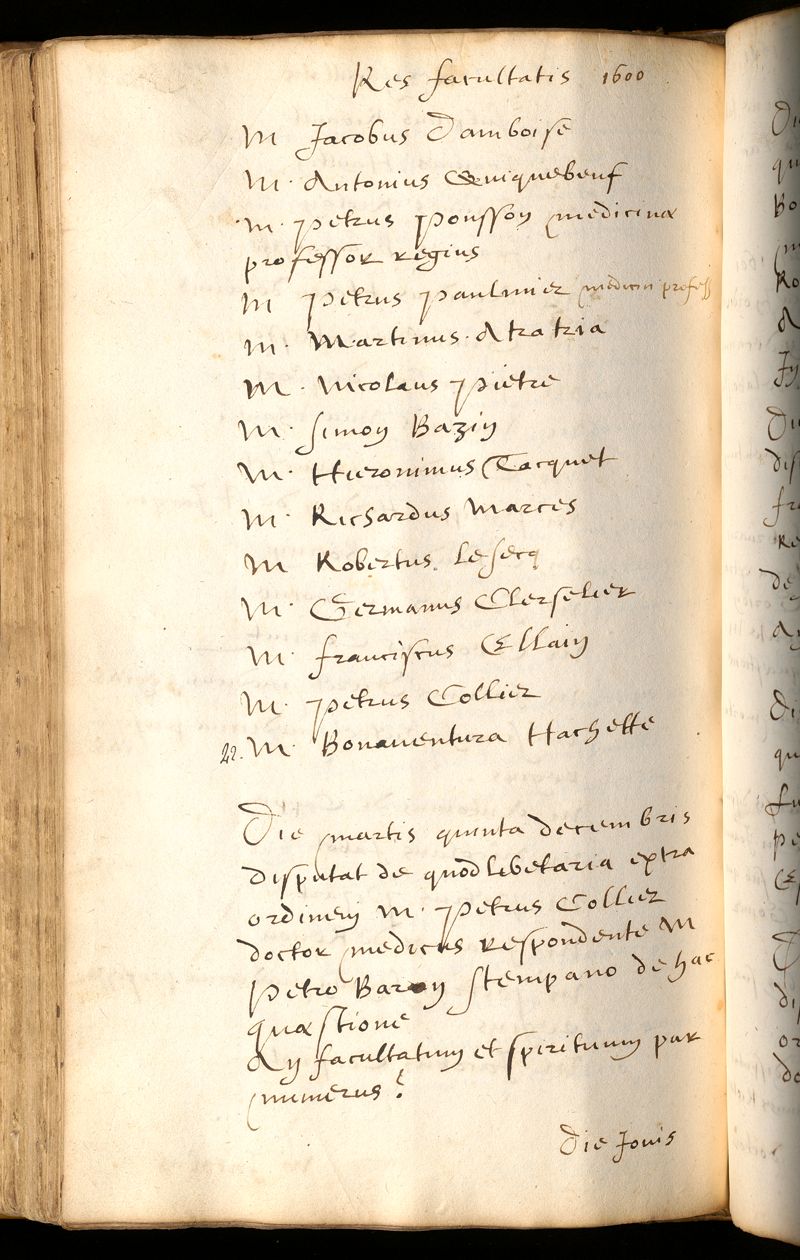 Res facultatis 1600
M Jacobus Damboise
M. Antonius Quiquebeuf
M. Petrus Pousson medicinæ
professor regius
M Petrus Paulmier medicin profess
M. Martinus Akakia
M. Nicolaus Pietre
M. Simon Bazin
M. Hieronimus Tacquet
M. Richardus Marces
M Robertus le secq
M. Germanus Clerselier
M. franciscus Ellain
M. Petrus Collier
22. M. Bonaventura Hachette
Die martis quinta decembris
disputat de quodlibetaria extra
ordinem M. Petrus Collier
doctor medicus respondente M
Petro Baron stempano de hac
quæstione
An facultatum et spirituum par
numerus?
Die Jovis